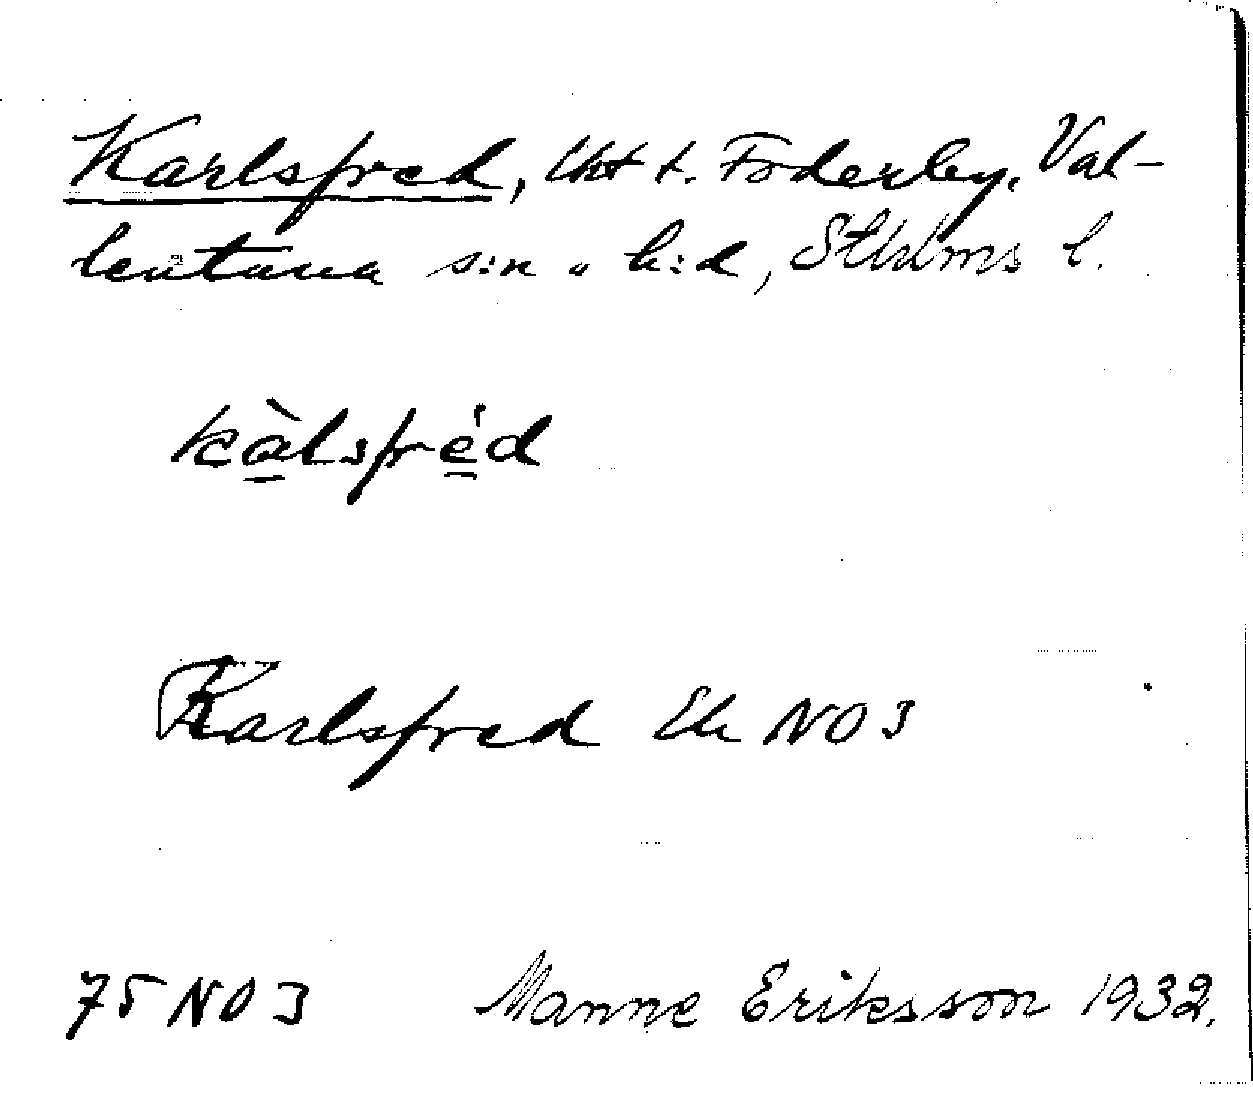 Karlsfred, lht t. Foderby, Val-
lentuna s:n o h:d, Sthlms l.
kàlsfréd
Karlsfred Ek NO 3
75 NO 3 Manne Eriksson 1932.